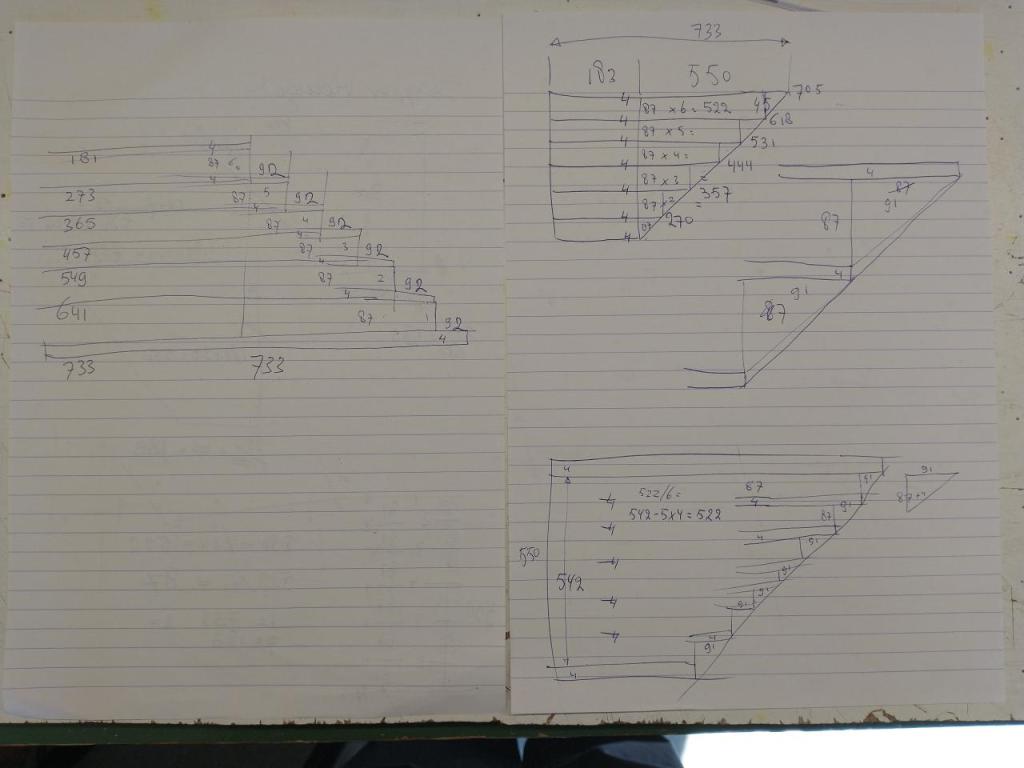 4
181
87 6=
92
4
273
87
5
92
4
365
87
4
92
4
457
87
3
92
4
549
87
2
92
4
641
87
1
92
4
733
733
733
183
550
4
87 × 6 = 522
45
705
4
87 × 5 =
618
4
87 × 4 =
531
4
87 × 3 =
444
4
87 × 2 =
357
4
87
270
4
87
91
87
4
91
87
4
91
522/6=
87
91
87+4
4
4
91
542-5×4=522
87
4
4
91
550
542
4
91
4
91
4
91
4
91
4